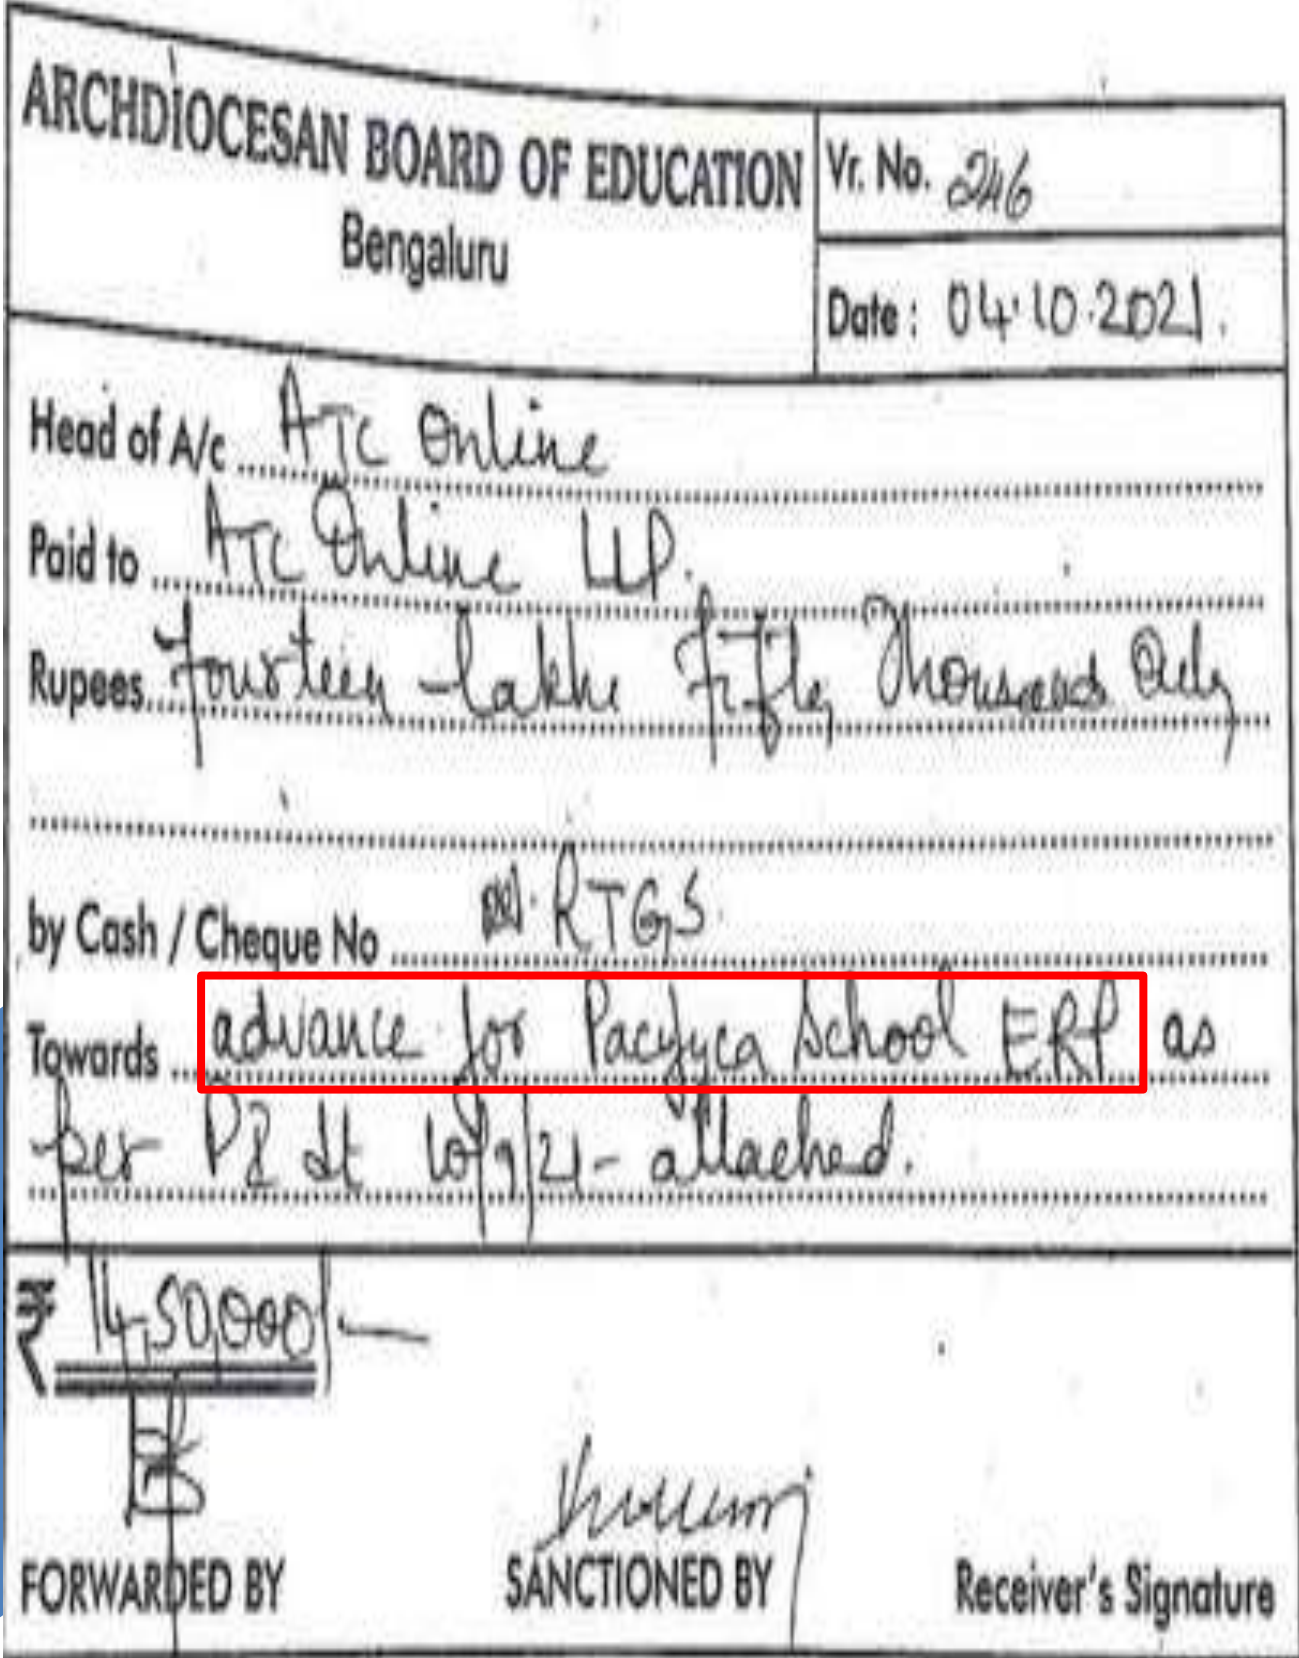 ARCHDIOCESAN BOARD OF EDUCATION
Bengaluru
Vr. No. 246
Date : 04.10.2021.
Head of A/c ATC Online
Paid to ATC Online LLP.
Rupees Fourteen lakhs Fifty Thousand Only
by Cash / Cheque No RTGS.
Towards advance for Pacifyca School ERP as
per PI dt 10/9/21 - attached.
₹ 14,50,000/-
FORWARDED BY
SANCTIONED BY
Receiver's Signature